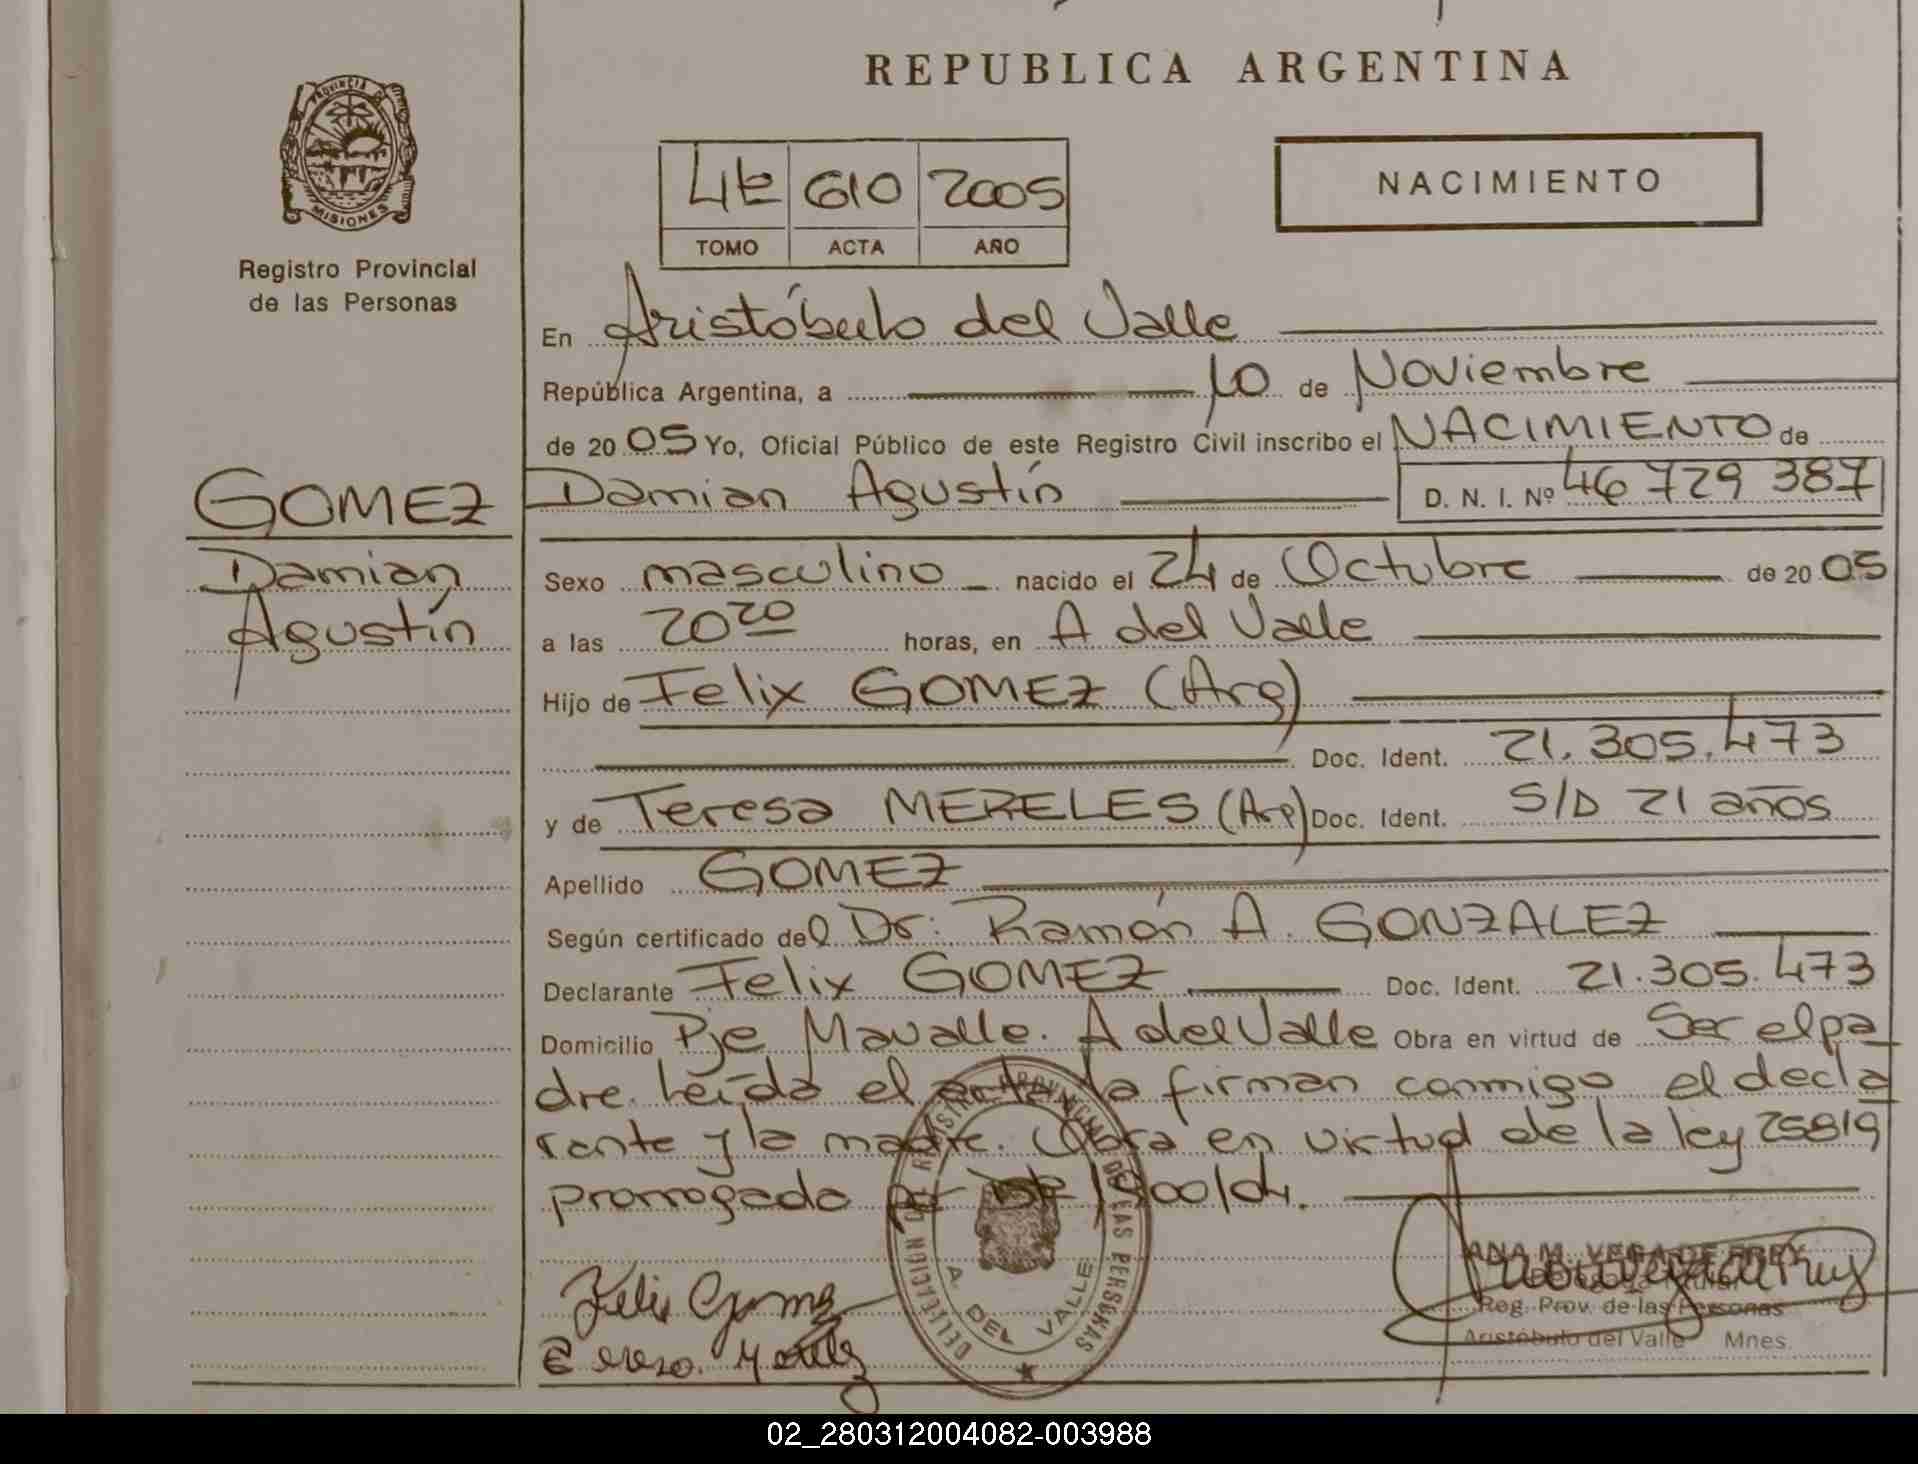 REPUBLICA ARGENTINA
PROVINCIA DE
MISIONES
Registro Provincial
de las Personas
4to 610 2005
TOMO ACTA AÑO
NACIMIENTO
En Aristóbulo del Valle
República Argentina, a 10 de Noviembre
de 20 05 Yo, Oficial Público de este Registro Civil inscribo el NACIMIENTO de
GOMEZ
Damian Agustín D. N. I. Nº 46 729 387
Damian
Agustín
Sexo masculino nacido el 24 de Octubre de 20 05
a las 20 20 horas, en A del Valle
Hijo de Felix GOMEZ (Arg)
Doc. Ident. 21.305.473
y de Teresa MERELES (Arg) Doc. Ident. S/D 21 años
Apellido GOMEZ
Según certificado del Dr: Ramón A. GONZALEZ
Declarante Felix GOMEZ Doc. Ident. 21.305.473
Domicilio Pje Mavalle. A del Valle Obra en virtud de Ser el pa
dre. Leída el acta la firman conmigo el decla
rante y la madre. Obra en virtud de la ley 25819
prorrogada por /04.
DELEGACION DEL REGISTRO PROVINCIAL DE LAS PERSONAS
A. DEL VALLE
Felix Gomez
ANA M. VEGA DE FREY
Reg. Prov. de las Personas
Aristóbulo del Valle Mnes.
02_280312004082-003988